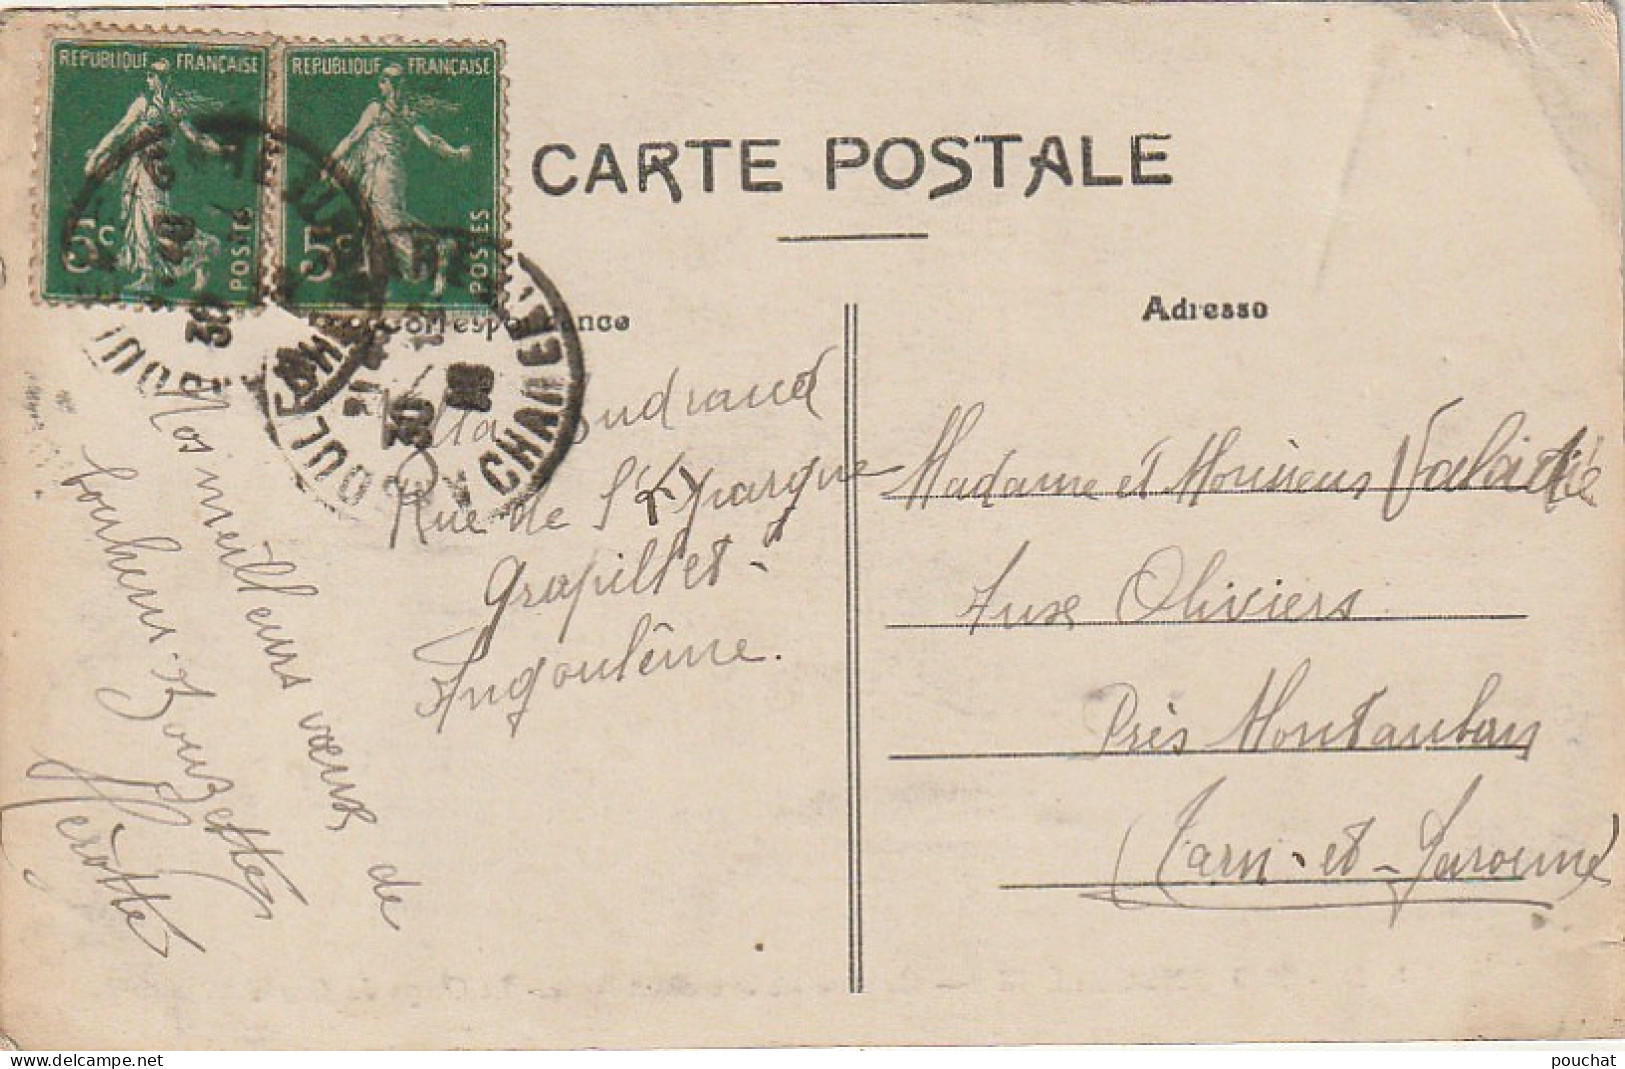 REPUBLIQUE FRANÇAISE
REPUBLIQUE FRANÇAISE
5c POSTES
5c POSTES
CARTE POSTALE
Correspondance
Adresse
Villa Andraud
Rue de l'Epargne
Grapillet -
Angoulême.
Nos meilleurs vœux de
bonheur.
Madame et Monsieur
Aux Oliviers
Près Montauban
(Tarn-et-Garonne)
ANGOULÊME
CHARENTE
30
delcampe.net
pouchat